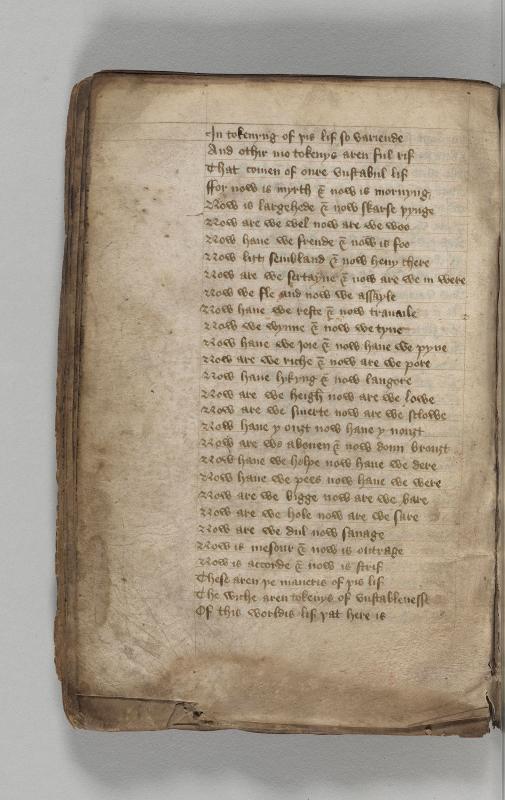 In tokenyng of þis lif so variende
And othir mo tokenys aren ful rif
That comen of oure vnstabul lif
Ffor now is myrth & now is mornyng
Now is largehede & now skarse pynge
Now are we wel now are we woo
Now haue we frende & now is foo
Now liȝt sembland & now heuy chere
Now are we sertayne & now are we in were
Now we fle and now we assayle
Now haue we reste & now trauaile
Now we wynne & now we tyne
Now haue we ioie & now haue we pyne
Now are we riche & now are we pore
Now haue lykyng & now langore
Now are we heigh now are we lowe
Now are we smerte now are we sclowe
Now haue y ouȝt now haue y nouȝt
Now are we abouen & now doun brouȝt
Now haue we helpe now haue we dere
Now haue we pees now haue we were
Now are we bigge now are we bare
Now are we hole now are we sare
Now are we dul now sauage
Now is mesour & now is outrage
Now is accorde & now is strif
These aren þe maneris of þis lif
The wiche aren tokenys of vnstablenesse
Of this worldis lif þat here is